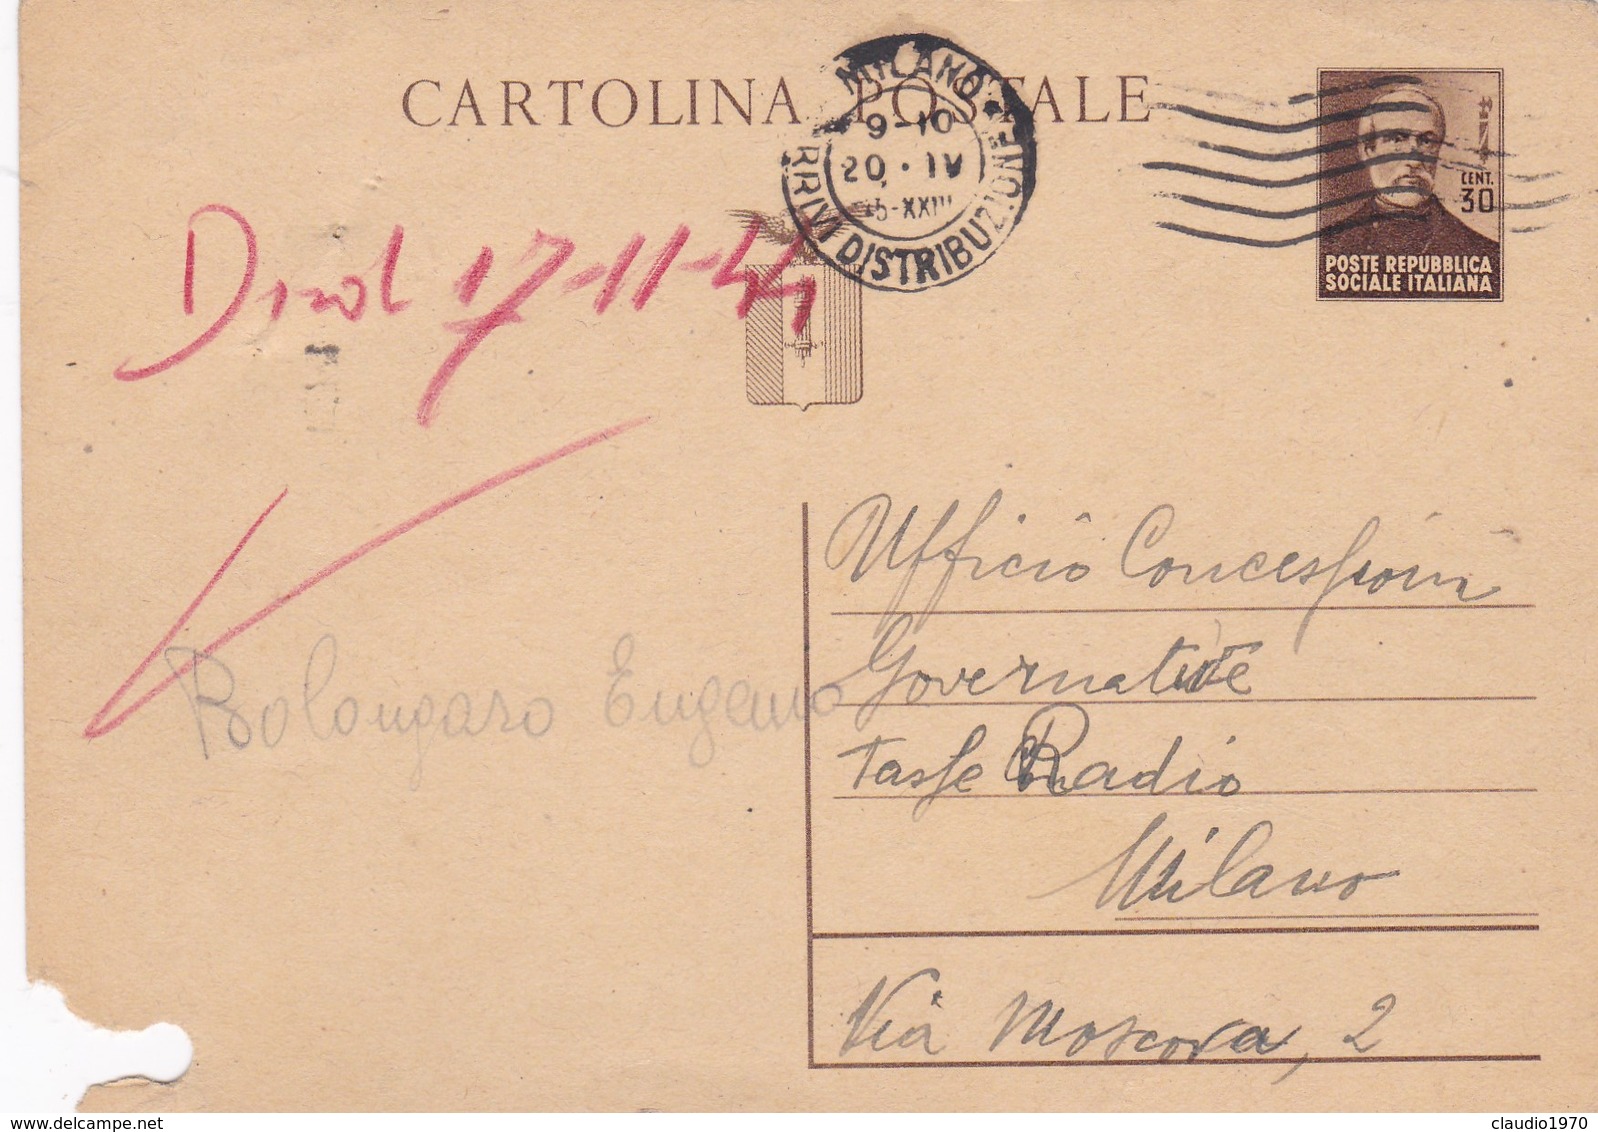 CARTOLINA POSTALE
MILANO
9-10
20 · IV
45-XXIII
ARRIVI DISTRIBUZIONE
CENT.
30
POSTE REPUBBLICA
SOCIALE ITALIANA
17-11-44
Ufficio Concessioni
Governative
Tasse Radio
Bolongaro Eugenio
Milano
Via Moscova, 2
claudio1970